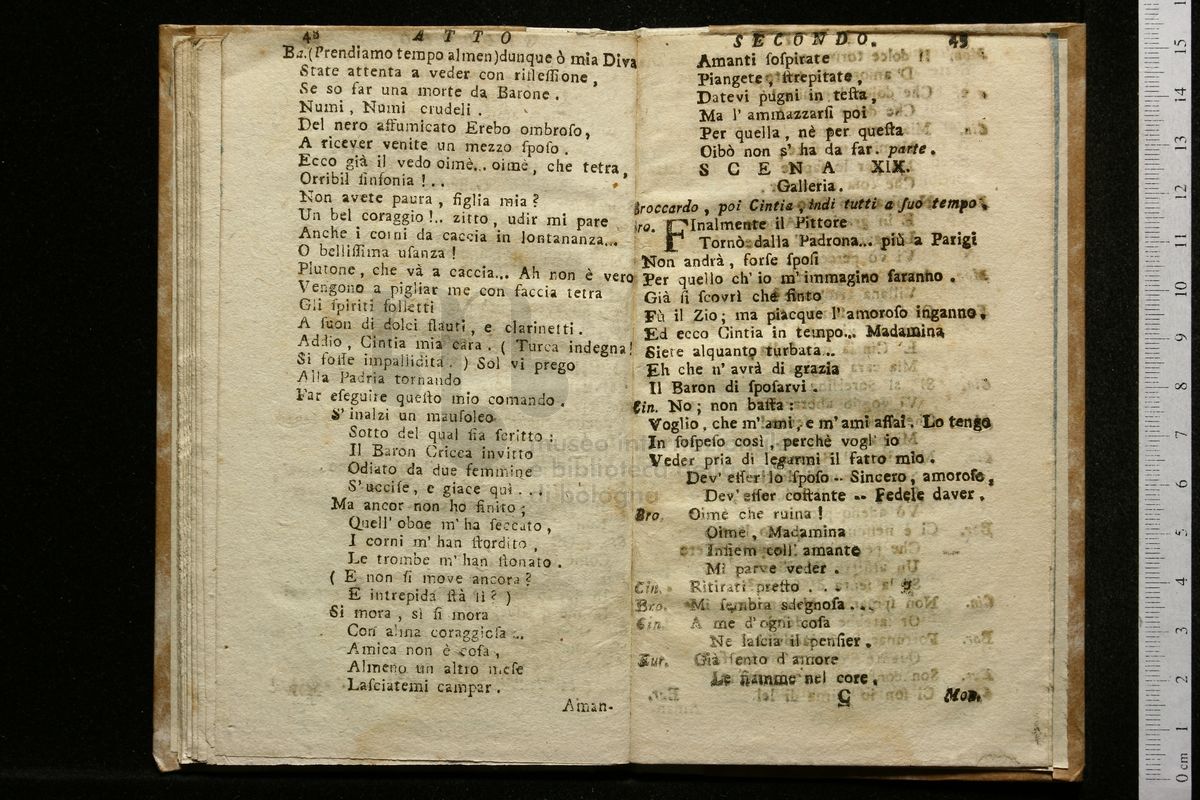 48 ATTO
Ba.(Prendiamo tempo almen)dunque ò mia Diva
State attenta a veder con rifleſſione,
Se so far una morte da Barone.
Numi, Numi crudeli.
Del nero affumicato Erebo ombroſo,
A ricever venite un mezzo ſpoſo.
Ecco già il vedo oimè.. oimè, che tetra,
Orribil ſinfonia!..
Non avete paura, figlia mia?
Un bel coraggio!.. zitto, udir mi pare
Anche i corni da caccia in lontananza...
O belliſſima uſanza!
Plutone, che và a caccia... Ah non è vero
Vengono a pigliar me con faccia tetra
Gli ſpiriti folletti
A ſuon di dolci flauti, e clarinetti.
Addio, Cintia mia cara. (Turca indegna!
Si foſſe impallidita.) Sol vi prego
Alla Padria tornando
Far eſeguire queſto mio comando.
S' inalzi un mauſoleo
Sotto del qual ſia ſcritto:
Il Baron Cricca invitto
Odiato da due femmine
S' ucciſe, e giace quì...
Ma ancor non ho finito;
Quell' oboe m' ha ſeccato,
I corni m' han ſtordito,
Le trombe m' han ſtonato.
(E non ſi move ancora?
E intrepida ſtà lì?)
Si mora, sì ſi mora
Con alma coraggioſa...
Amica non è coſa,
Almeno un altro meſe
Laſciatemi campar.
Aman-
SECONDO. 49
Amanti ſoſpirate
Piangete, ſtrepitate,
Datevi pugni in teſta,
Ma l' ammazzarſi poi
Per quella, nè per queſta
Oibò non s' ha da far. parte.
SCENA XIX.
Galleria.
Broccardo, poi Cintia, indi tutti a ſuo tempo.
Bro. FInalmente il Pittore
Tornò dalla Padrona... più a Parigi
Non andrà, forſe ſpoſi
Per quello ch' io m' immagino ſaranno.
Già ſi ſcovrì chè finto
Fù il Zio; ma piacque l' amoroſo inganno.
Ed ecco Cintia in tempo... Madamina
Siete alquanto turbata...
Eh che n' avrà di grazia
Il Baron di ſpoſarvi.
Cin. No; non baſta:
Voglio, che m' ami, e m' ami aſſai. Lo tengo
In ſoſpeſo così, perchè vogl' io
Veder pria di legarmi il fatto mio.
Dev' eſſer lo ſpoſo -- Sincero, amoroſo,
Dev' eſſer coſtante -- Fedele daver.
Bro. Oimè che ruina!
Oimè, Madamina
Inſiem coll' amante
Mi parve veder.
Cin. Ritirati preſto...
Bro. Mi ſembra sdegnoſa...
Cin. A me d' ogni coſa
Ne laſcia il penſier.
Aur. Già ſento d' amore
Le fiamme nel core,
C Mon.